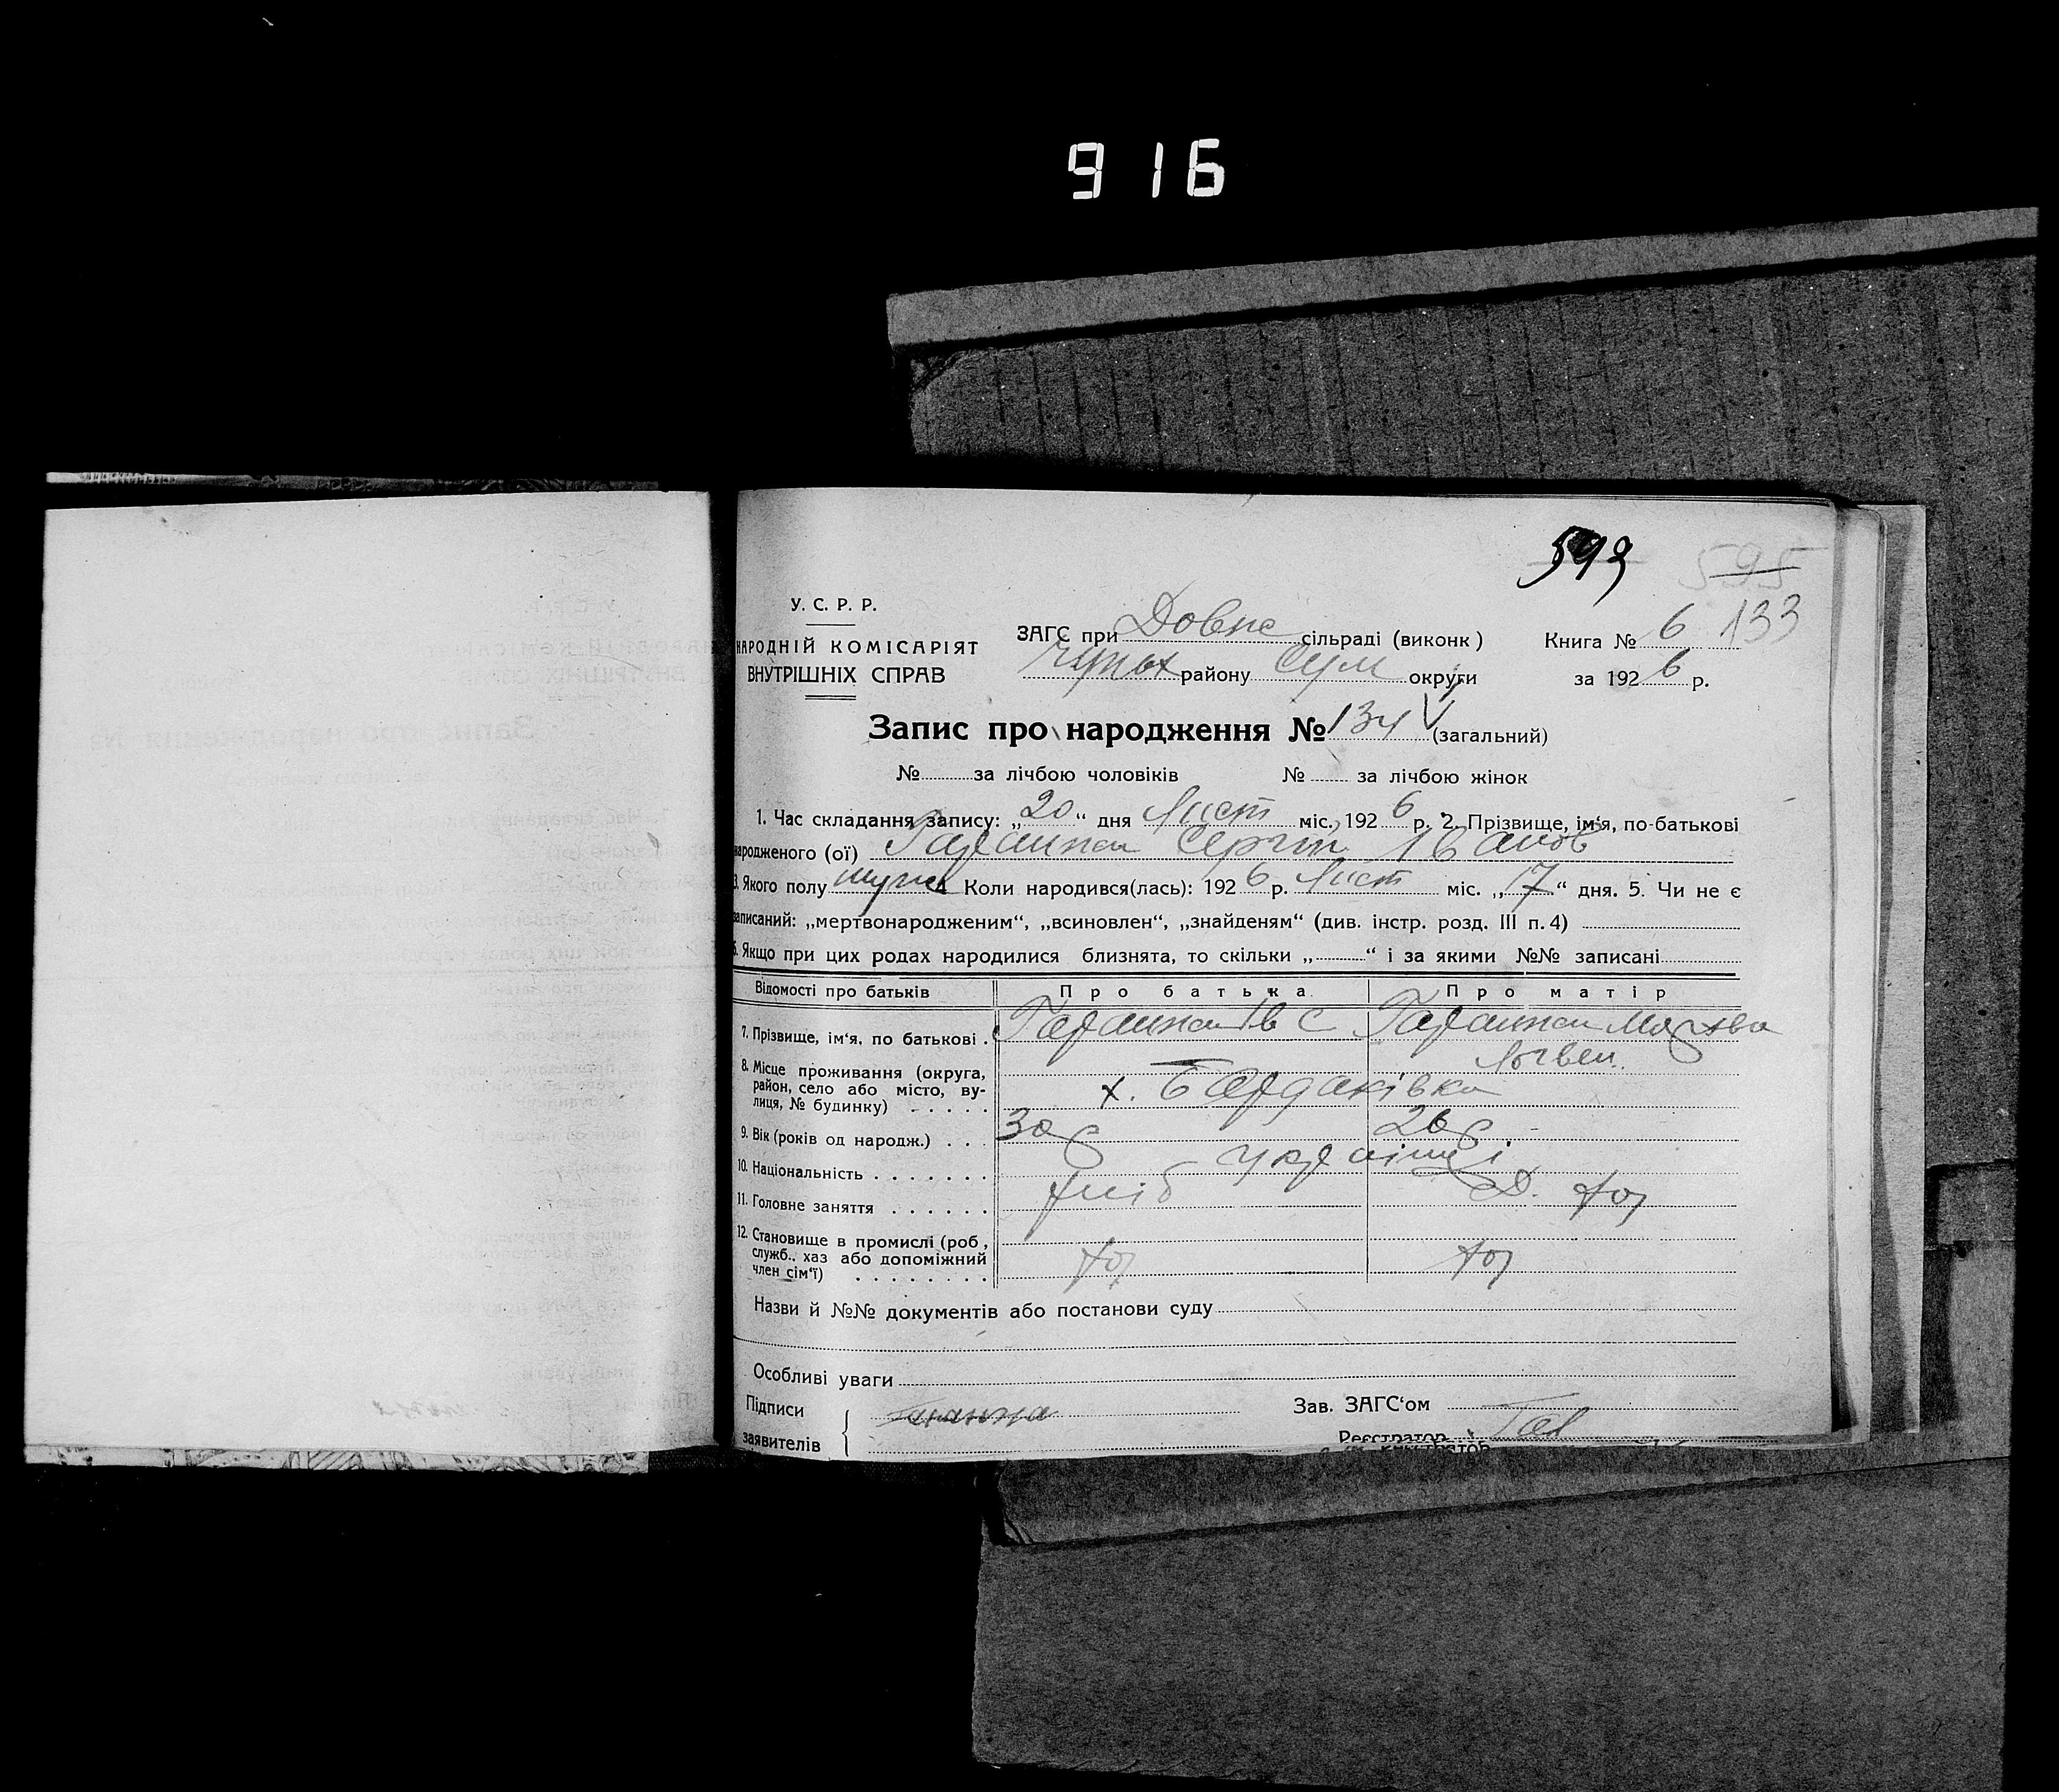 916
593
595
133
У. С. Р. Р.
НАРОДНІЙ КОМІСАРІЯТ
ВНУТРІШНІХ СПРАВ
ЗАГС при Довже сільраді (виконк)
району Сум округи
Книга № 6
за 1926 р.
Запис про народження № 134 (загальний)
№ за лічбою чоловіків № за лічбою жінок
1. Час складання запису: „20“ дня Лист міс. 1926 р. 2. Прізвище, ім‘я, по-батькові
народженого (ої) Гаранжа Сергій Іванов
3. Якого полу муж 4. Коли народився(лась): 1926 р. Лист міс. „17“ дня. 5. Чи не є
записаний: „мертвонародженим“, „всиновлен“, „знайденям“ (див. інстр. розд. III п. 4)
6. Якщо при цих родах народилися близнята, то скільки „ “ і за якими №№ записані
Відомості про батьків Про батька Про матір
7. Прізвище, ім‘я, по батькові . Гаранжа Ів С Гаранжа Мархва
Логвен.
8. Місце проживання (округа,
район, село або місто, ву-
лиця, № будинку) . . . . . х. Бардаківка
9. Вік (років од народж.) . . . 30 р 26 р.
10. Національність . . . . . . . українці
11. Головне заняття . . . . . . хліб Д. хоз
12. Становище в промислі (роб.,
служб., хаз або допоміжний
член сім‘ї) . . . . . . . . хоз хоз
Назви й №№ документів або постанови суду
Особливі уваги
Підписи
заявителів
Зав. ЗАГС‘ом
Реєстратор